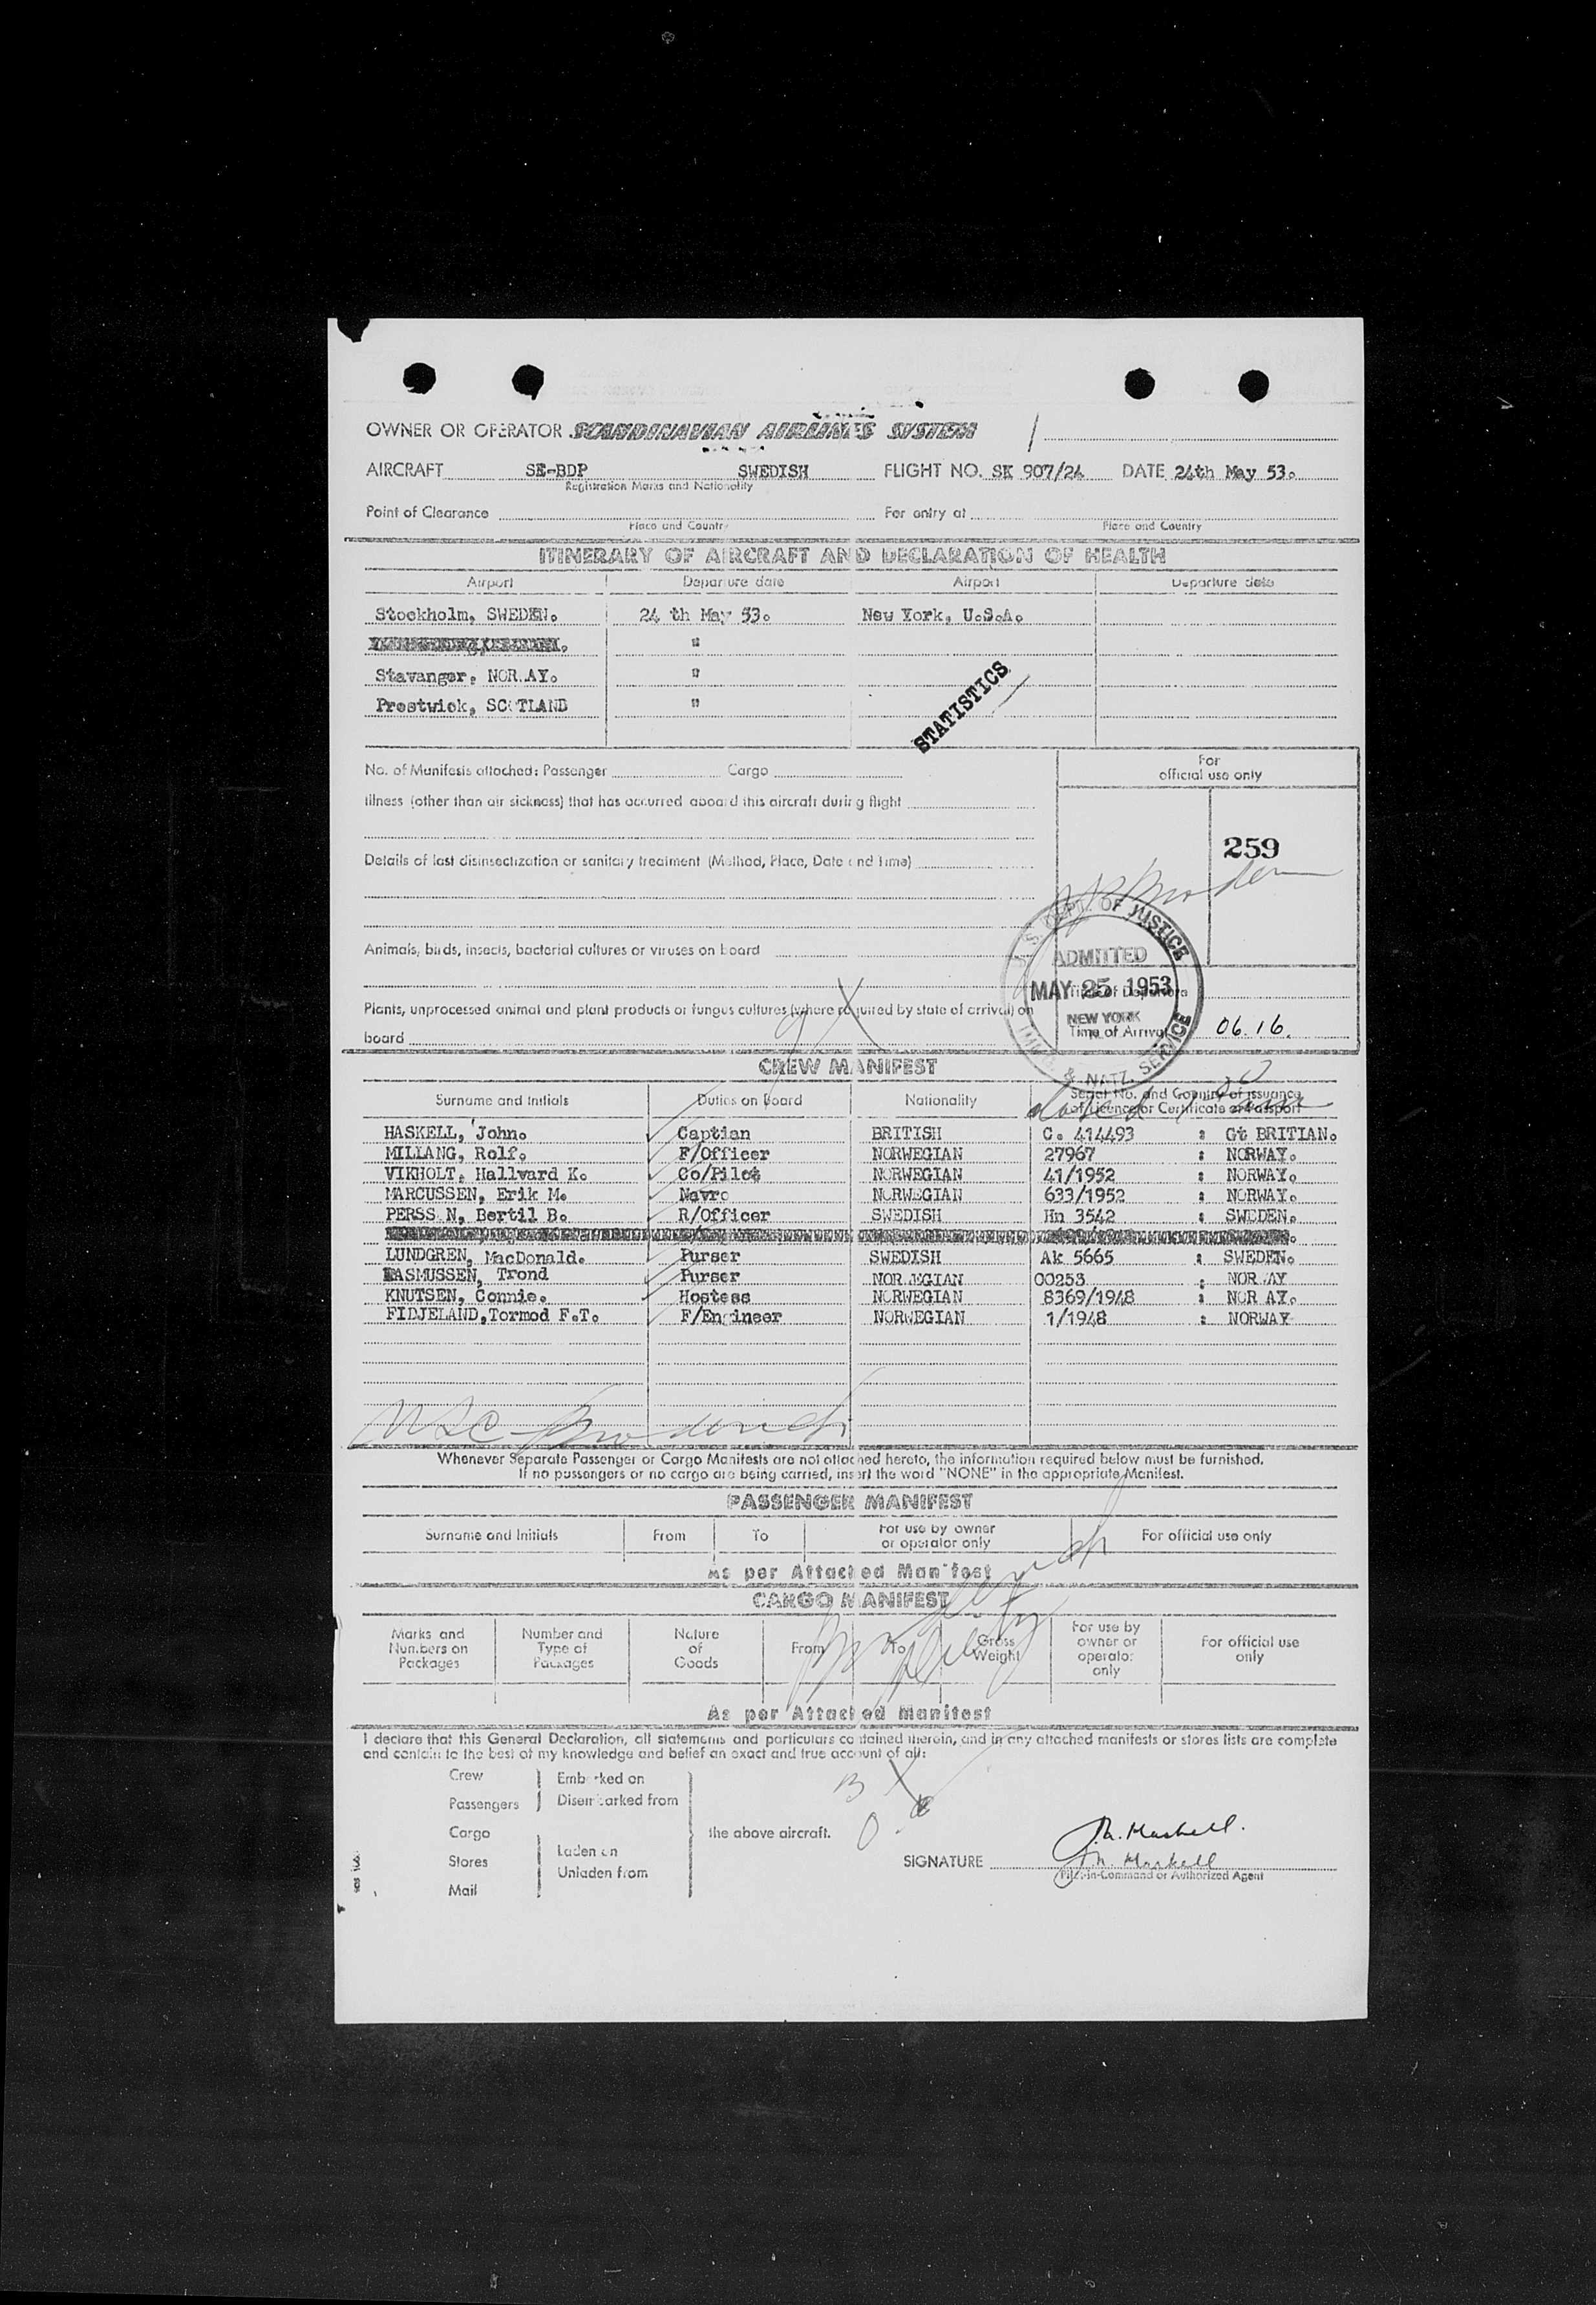 OWNER OR OPERATOR SCANDINAVIAN AIRLINES SYSTEM
AIRCRAFT SE-BDP SWEDISH FLIGHT NO. SK 907/24 DATE 24th May 53.
Registration Marks and Nationality
Point of Clearance For entry at
Place and Country Place and Country
ITINERARY OF AIRCRAFT AND DECLARATION OF HEALTH
Airport Departure date Airport Departure date
Stockholm, SWEDEN. 24 th May 53. New York, U.S.A.
"
Stavanger, NOR.AY. "
Prestwick, SCOTLAND "
STATISTICS
No. of Manifests attached: Passenger Cargo
For
official use only
Illness (other than air sickness) that has occurred aboard this aircraft during flight
259
Details of last disinsectization or sanitary treatment (Method, Place, Date and Time)
U. S. DEPT. OF JUSTICE
ADMITTED
MAY 25 1953
NEW YORK
IMMIG. & NATZ. SERVICE
Animals, birds, insects, bacterial cultures or viruses on board
Time of Departure
Plants, unprocessed animal and plant products or fungus cultures (where required by state of arrival) on
board
Time of Arrival 06.16.
9
CREW MANIFEST
Surname and Initials Duties on Board Nationality Serial No. and Country of issuance
of Licence or Certificate or Passport
HASKELL, John. Captian BRITISH C. 414493 : Gt BRITIAN.
MILLANG, Rolf. F/Officer NORWEGIAN 27967 : NORWAY.
VIKHOLT, Hallvard K. Co/Pilot NORWEGIAN 41/1952 : NORWAY.
MARCUSSEN, Erik M. Navro NORWEGIAN 633/1952 : NORWAY.
PERSS N, Bertil B. R/Officer SWEDISH Hn 3542 : SWEDEN.
LUNDGREN, MacDonald. Purser SWEDISH Ak 5665 : SWEDEN.
RASMUSSEN, Trond Purser NORWEGIAN 00253 : NORWAY
KNUTSEN, Connie. Hostess NORWEGIAN 8369/1948 : NOR AY.
FIDJELAND,Tormod F.T. F/Engineer NORWEGIAN 1/1948 : NORWAY
Whenever Separate Passenger or Cargo Manifests are not attached hereto, the information required below must be furnished.
If no passengers or no cargo are being carried, insert the word "NONE" in the appropriate Manifest.
PASSENGER MANIFEST
Surname and Initials From To For use by owner
or operator only For official use only
As per Attached Manifest
CARGO MANIFEST
Marks and
Numbers on
Packages Number and
Type of
Packages Nature
of
Goods From To Gross
Weight For use by
owner or
operator
only For official use
only
As per Attached Manifest
I declare that this General Declaration, all statements and particulars contained therein, and in any attached manifests or stores lists are complete
and contain to the best of my knowledge and belief an exact and true account of all:
Crew Embarked on
Passengers Disembarked from
Cargo the above aircraft.
Stores Laden on
Mail Unladen from
13
0
J.N. Haskell.
SIGNATURE J.N. Haskell
Pilot-in-Command or Authorized Agent